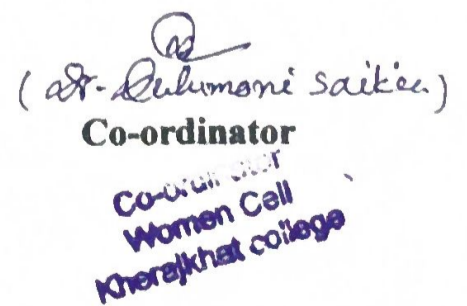 (Dr. Dulumoni Saikia)
Co-ordinator
Co-ordinator
Women Cell
Kherajkhat college